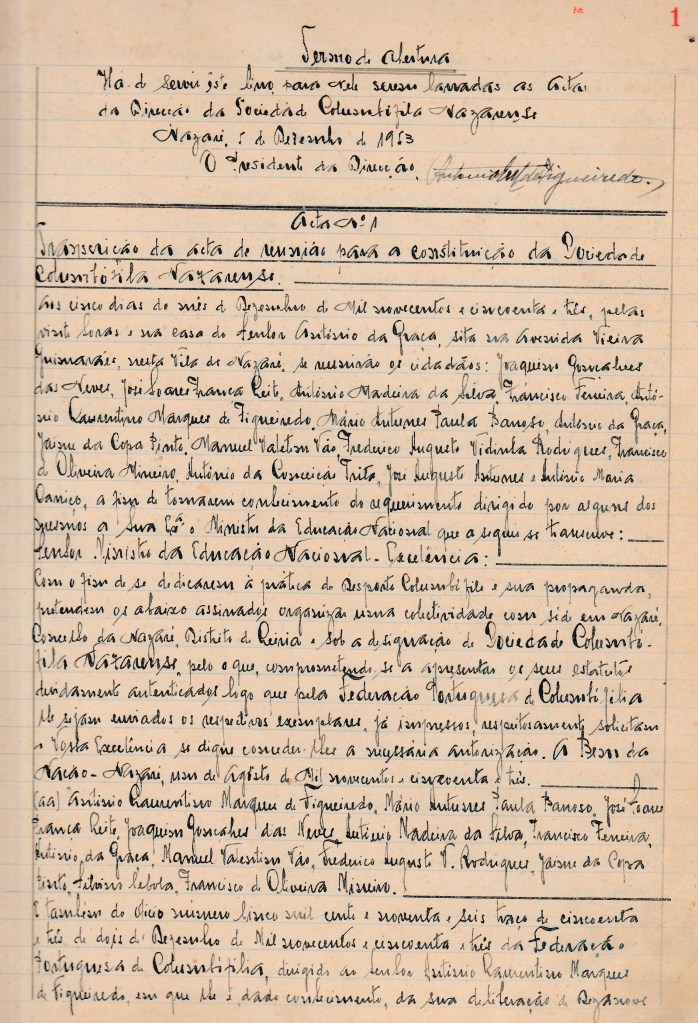 1
Termo de abertura
Há-de servir este livro para nele serem lavradas as actas
da Direcção da Sociedade Columbófila Nazarense
Nazaré, 5 de Dezembro de 1953
O Presidente da Direcção,
Acta Nº 1
Transcrição da acta de reunião para a constituição da Sociedade
Columbófila Nazarense.
Aos cinco dias do mês de Dezembro de Mil novecentos e cincoenta e três, pelas
vinte horas e na casa do Senhor António da Graça, sita na Avenida Vieira
Guimarães, nesta Vila de Nazaré, se reunirão os cidadãos: Joaquim Goncalves
das Neves, José Soares Franca Leite, António Madeira da Silva, Francisco Ferreira, Antó-
nio Laurentino Marques de Figueiredo, Mário Antunes Paula Barroso, António da Graça,
Jaime da Copa Pinto, Manuel Valetim Vão, Frederico Augusto Rodrigues, Francisco
de Oliveira Mineiro, António da Conceição Frito, José Augusto Antunes e António Maria
a fim de tomarem conhecimento do requerimento dirigido por alguns dos
mesmos a Sua Exª o Ministro da Educação Nacional que a seguir se transcreve:
Senhor Ministro da Educação Nacional - Excelência:
Com o fim de se dedicarem à prática do Desporto Columbófilo e sua propaganda,
pretendem os abaixo assinados organizar uma colectividade com sede em Nazaré,
Concelho da Nazaré, Distrito de Leiria e sob a designação de Sociedade Columbó-
fila Nazarense, pelo o que, comprometendo-se a apresentar os seus estatutos
devidamente autenticados logo que pela Federação Portuguesa de Columbófilia
lhe sejam enviados os respectivos exemplares, já impressos, respeitosamente solicitam
a Vossa Excelência se digne conceder-lhes a necessária autorização. A Bem da
Nação - Nazaré, um de Agosto de Mil novecentos e cincoenta e três.
(aa) António Laurentino Marques de Figueiredo, Mário Antunes Paula Barroso, José Soares
Franca Leite, Joaquim Goncalves das Neves, António Madeira da Silva, Francisco Ferreira,
António da Graça, Manuel Valentim Vão, Frederico Augusto V. Rodrigues, Jaime da Copa
Pinto, Francisco de Oliveira Mineiro.
E também do oficio número cinco mil cento e noventa e seis traço de cincoenta
e três de dois de Dezembro de Mil novecentos e cincoenta e três da Federação
Portuguesa de Columbófilia, dirigido ao Senhor António Laurentino Marques
de Figueiredo, em que lhe é dado conhecimento, da sua deliberação de Dezanove